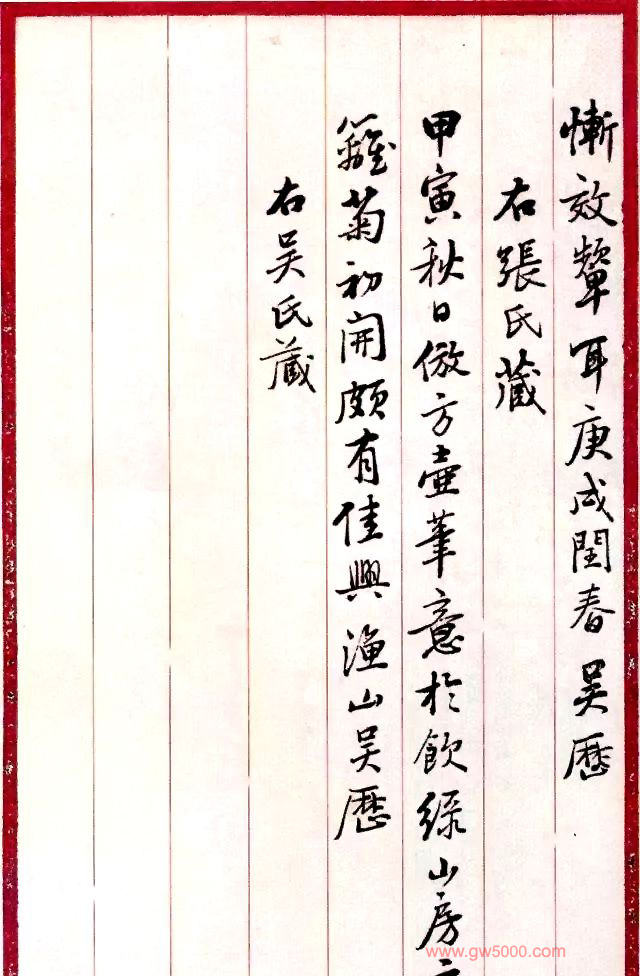 慚效顰耳庚戌閏春吳歷
右張氏藏
甲寅秋日倣方壺筆意於飲綠山房
籬菊初開頗有佳興漁山吳歷
右吳氏藏
www.gw5000.com